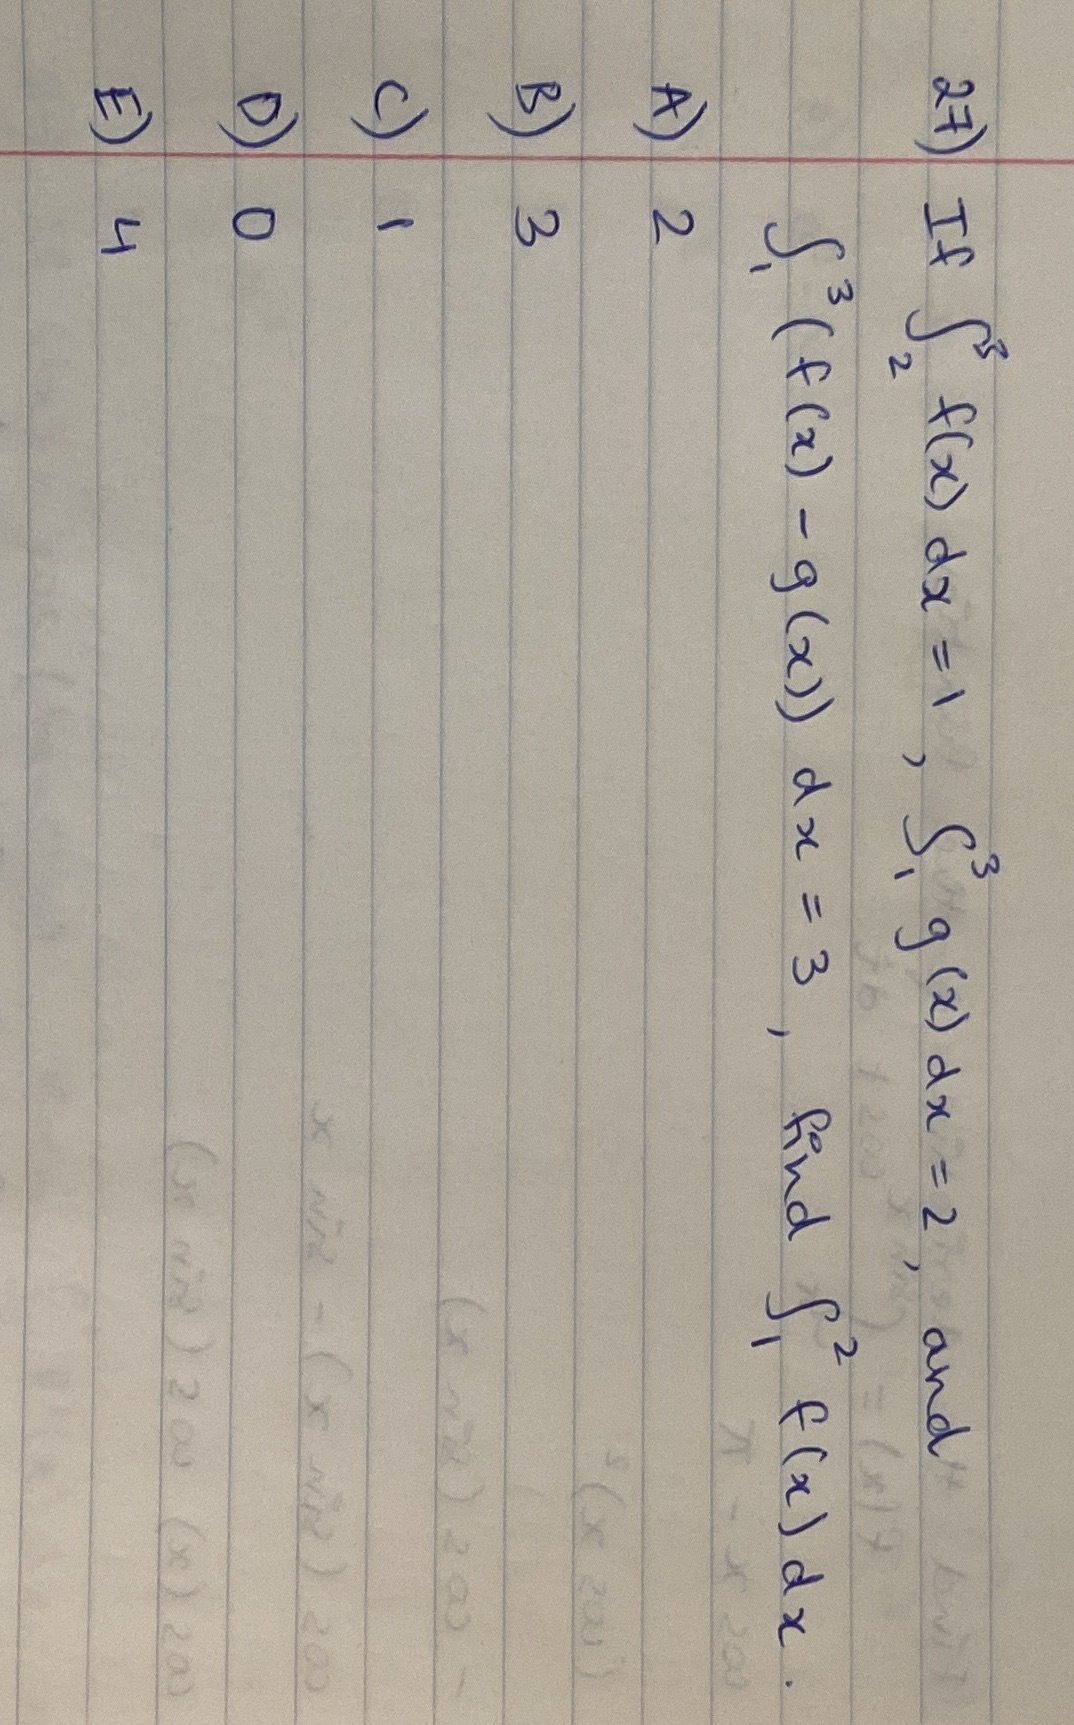 27) If ∫₂³ f(x) dx = 1, ∫₁³ g(x) dx = 2, and
∫₁³ (f(x) - g(x)) dx = 3, find ∫₁² f(x) dx.
A) 2
B) 3
C) 1
D) 0
E) 4